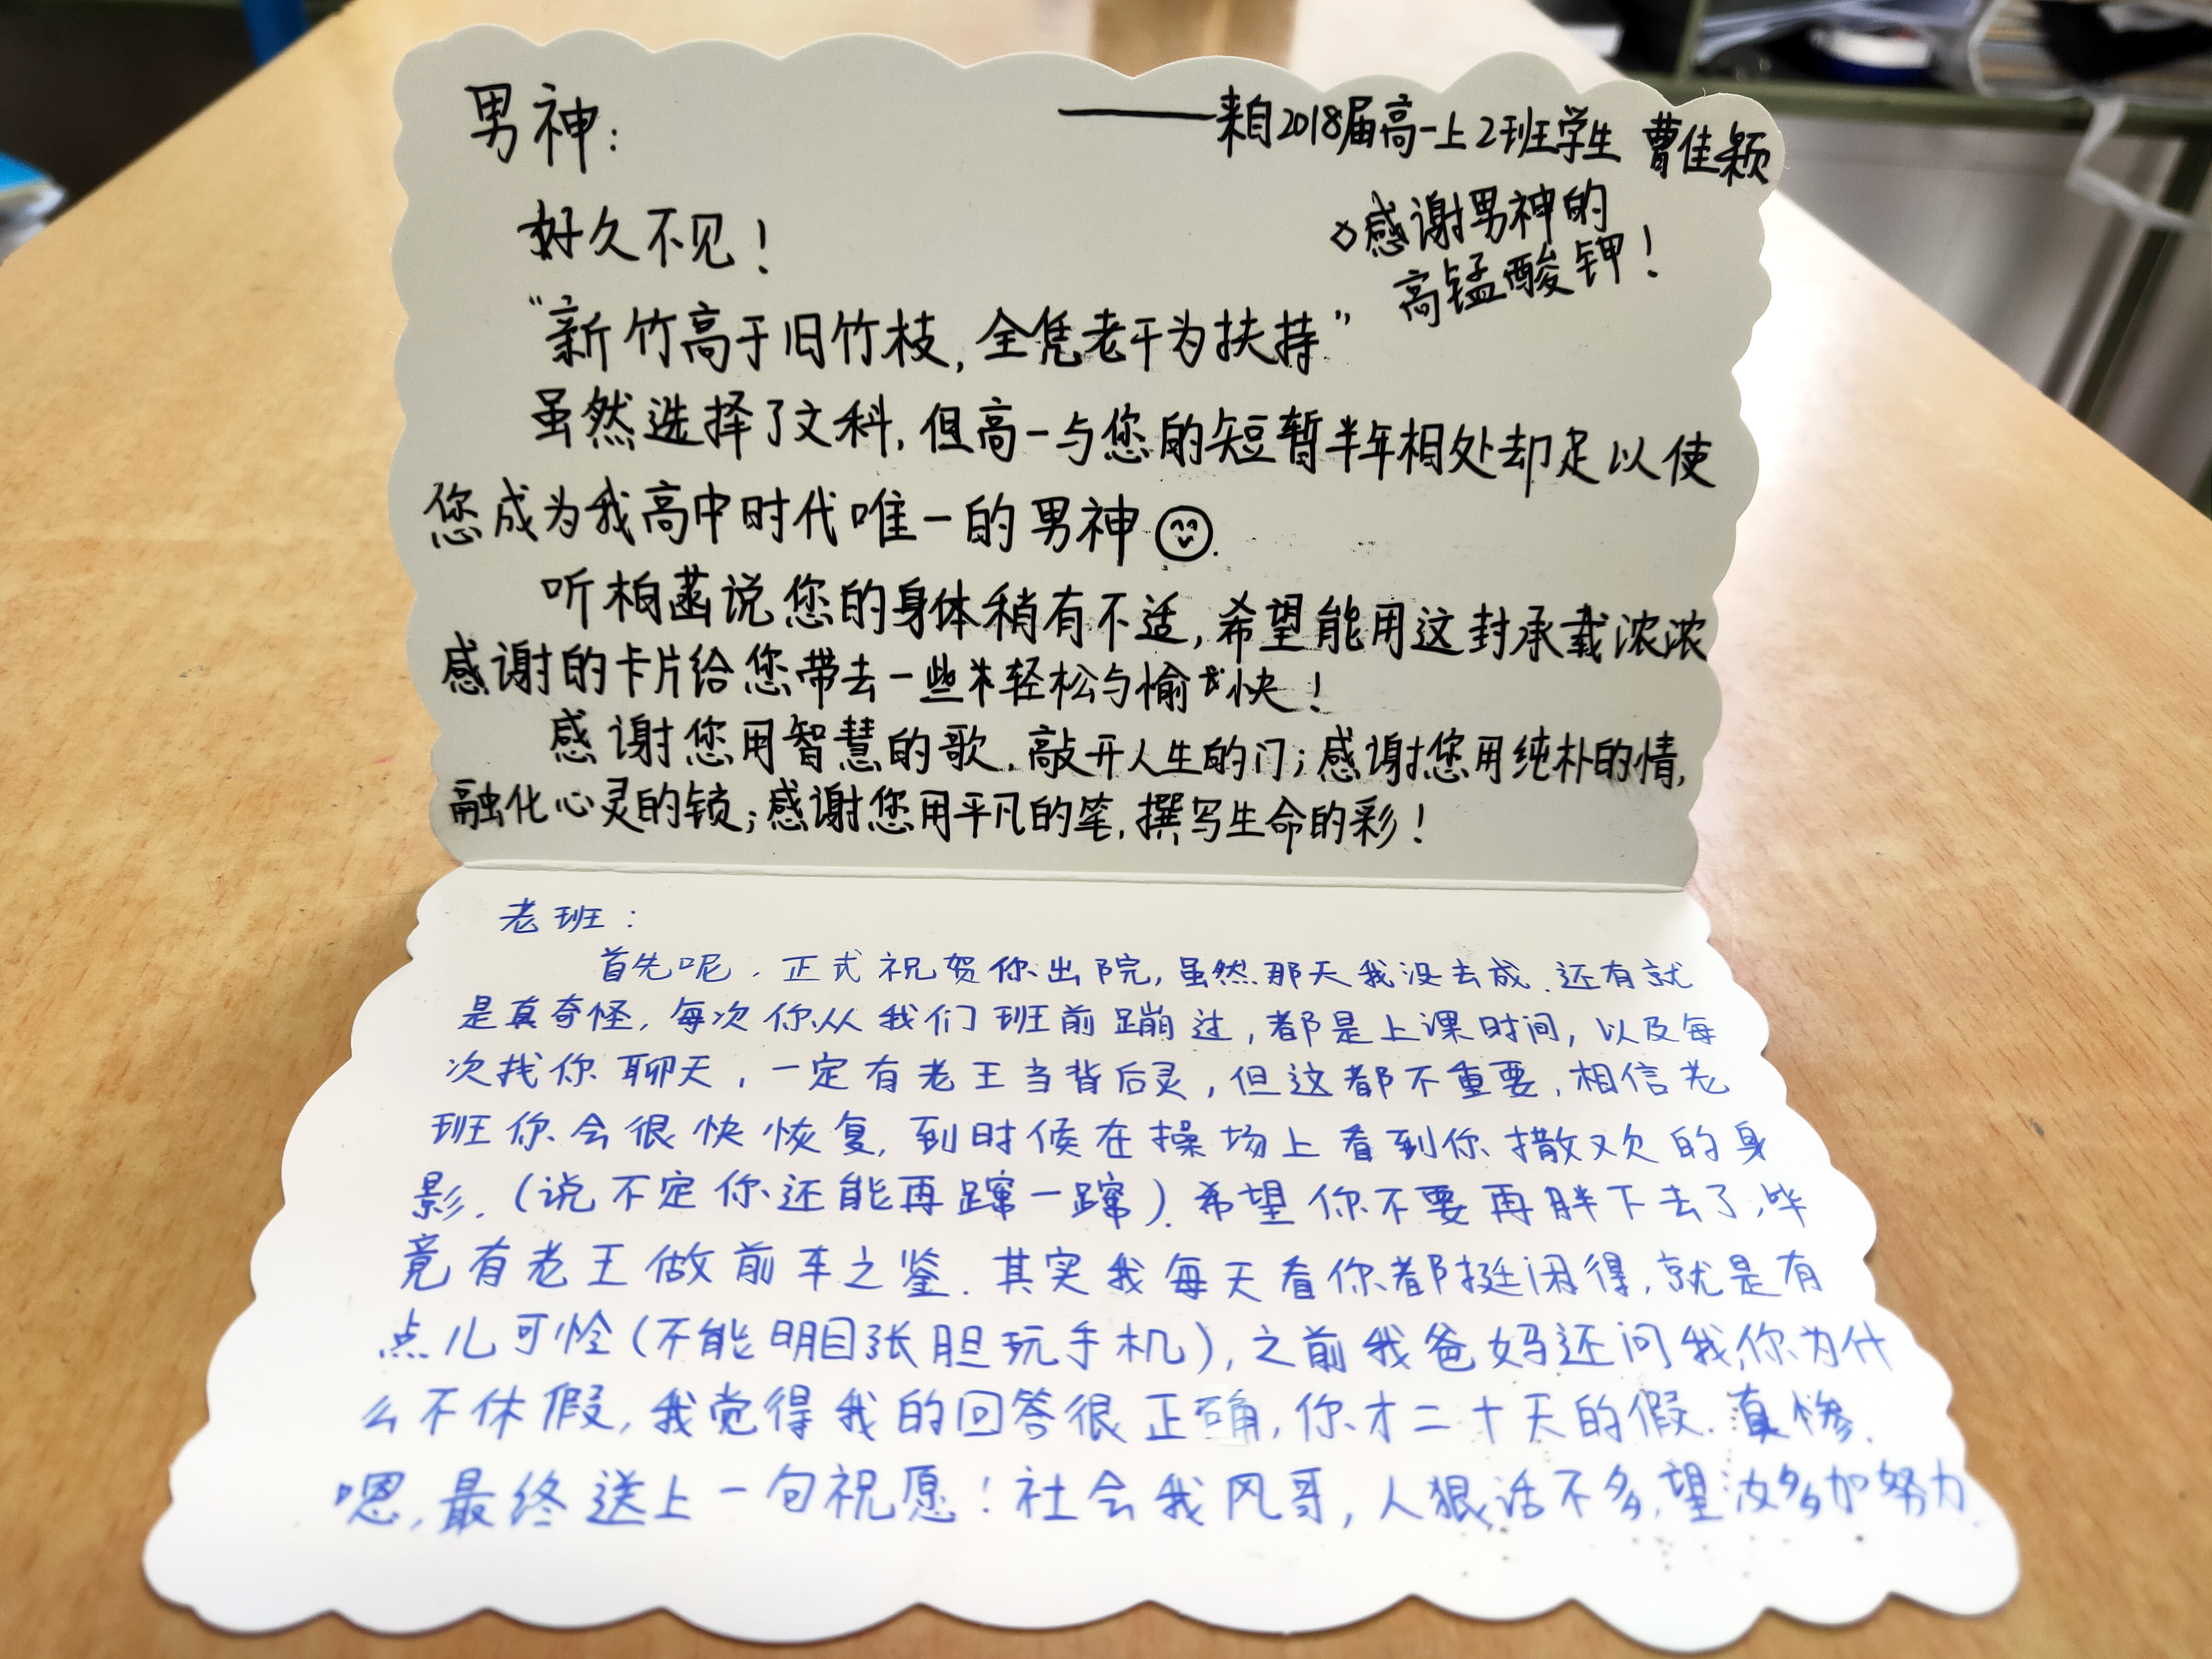 男神：
——来自2018届高一上2班学生 曹佳颖
好久不见！
◇感谢男神的
高锰酸钾！
“新竹高于旧竹枝，全凭老干为扶持”
虽然选择了文科，但高一与您的短暂半年相处却足以使
您成为我高中时代唯一的男神.
听柏菡说您的身体稍有不适，希望能用这封承载浓浓
感谢的卡片给您带去一些轻松与愉快！
感谢您用智慧的歌，敲开人生的门；感谢您用纯朴的情，
融化心灵的锁；感谢您用平凡的笔，撰写生命的彩！
老班：
首先呢，正式祝贺你出院，虽然那天我没去成.还有就
是真奇怪，每次你从我们班前蹦过，都是上课时间，以及每
次找你聊天，一定有老王当背后灵，但这都不重要，相信老
班你会很快恢复，到时候在操场上看到你撒欢的身
影.（说不定你还能再蹿一蹿）.希望你不要再胖下去了，毕
竟有老王做前车之鉴.其实我每天看你都挺闲得，就是有
点儿可怜（不能明目张胆玩手机），之前我爸妈还问我，你为什
么不休假，我觉得我的回答很正确，你才二十天的假.真惨.
嗯，最终送上一句祝愿！社会我风哥，人狠话不多，望汝多加努力.